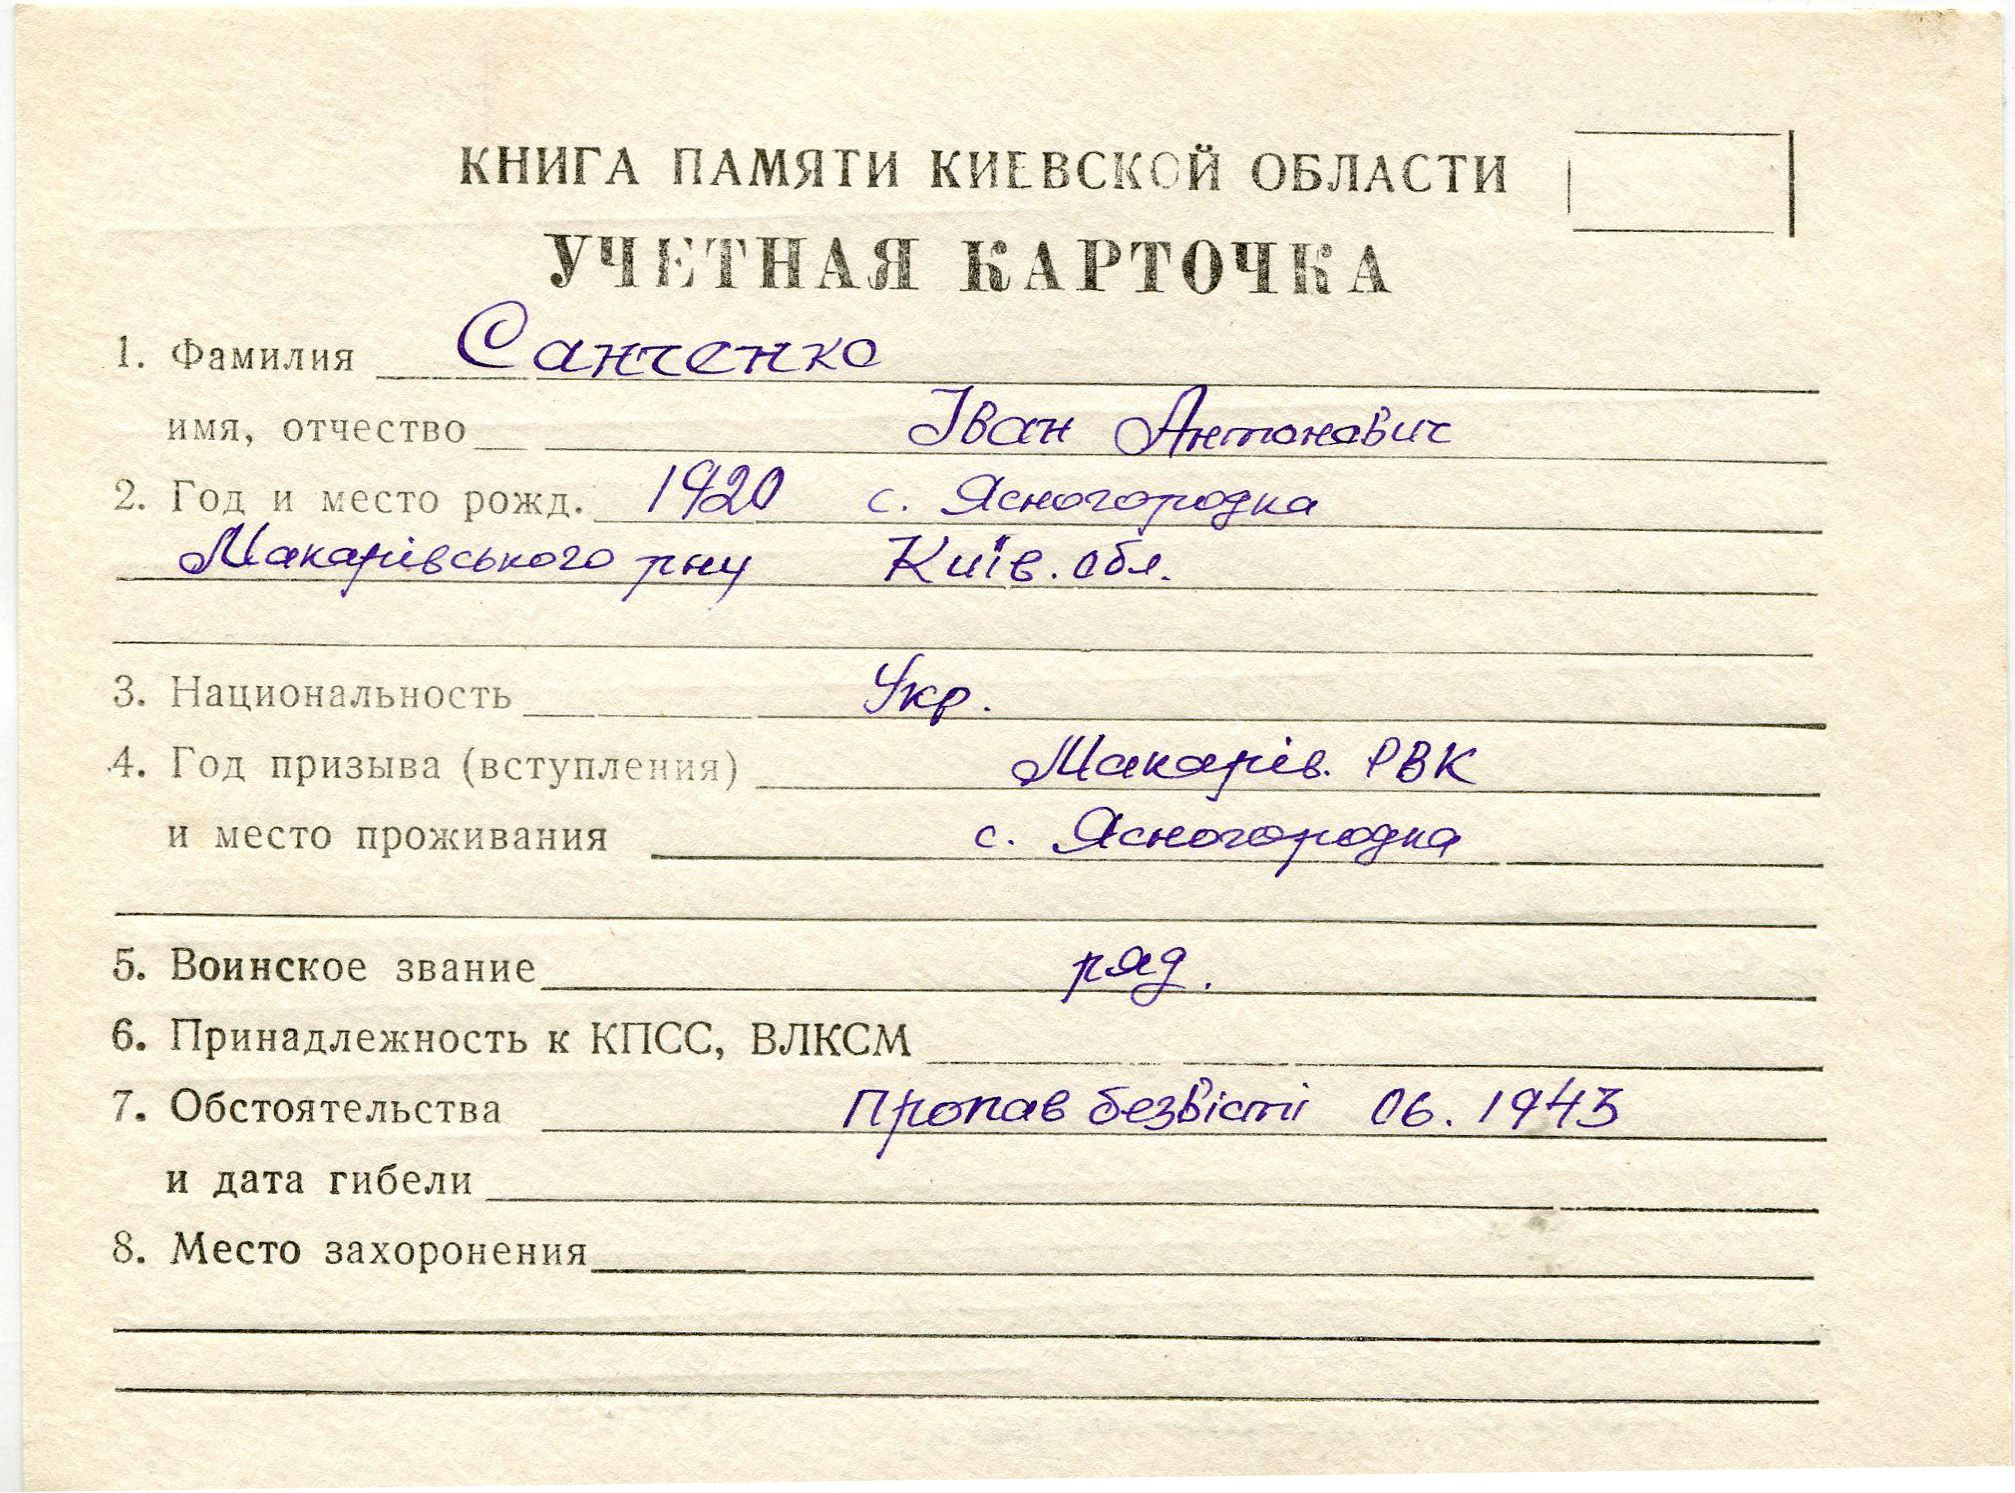 КНИГА ПАМЯТИ КИЕВСКОЙ ОБЛАСТИ
УЧЕТНАЯ КАРТОЧКА
1. Фамилия Санченко
имя, отчество Іван Антонович
2. Год и место рожд. 1920 с. Ясногородка
Макарівського рну Київ. обл.
3. Национальность Укр.
4. Год призыва (вступления) Макарів. РВК
и место проживания с. Ясногородка
5. Воинское звание ряд.
6. Принадлежность к КПСС, ВЛКСМ
7. Обстоятельства Пропав безвісті 06. 1943
и дата гибели
8. Место захоронения